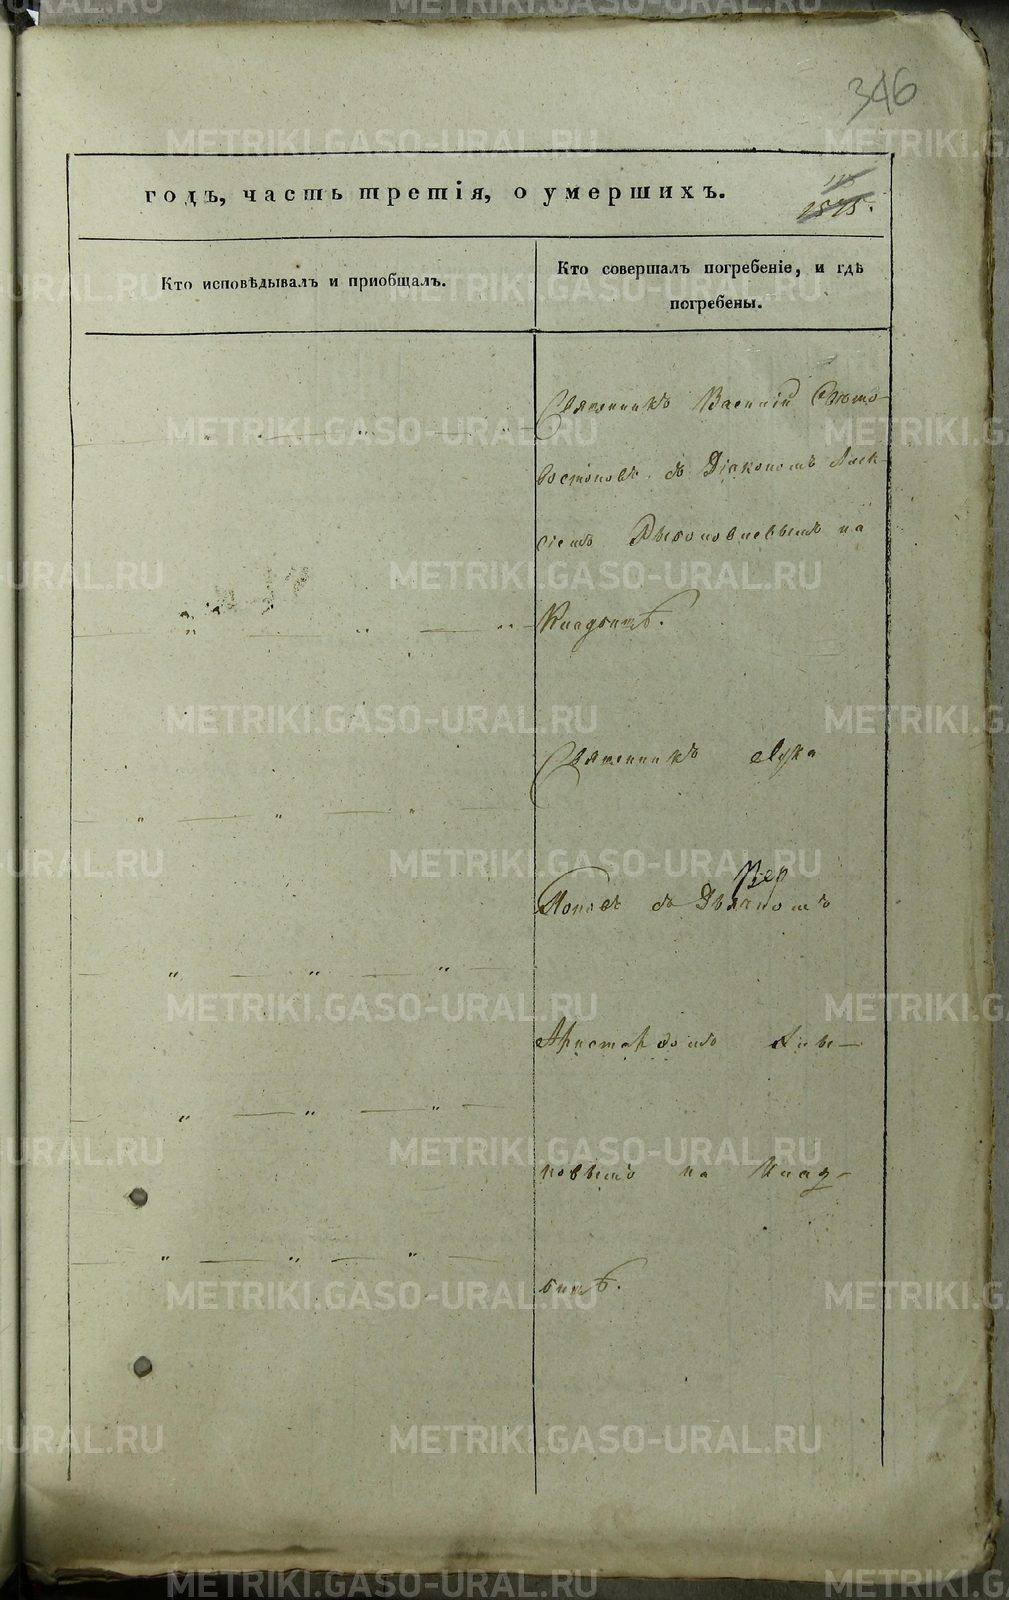 346
годъ, часть третія, о умершихъ.
1575.
Кто исповѣдывалъ и приобщалъ.
Кто совершалъ погребеніе, и гдѣ
погребены.
Священникъ Василій
съ Діакономъ Алек-
сіемъ на
Кладбищѣ.
Священникъ Лука
Поповъ съ Дьячкомъ
Аристархомъ
новымъ на Клад-
бищѣ.
METRIKI.GASO-URAL.RU